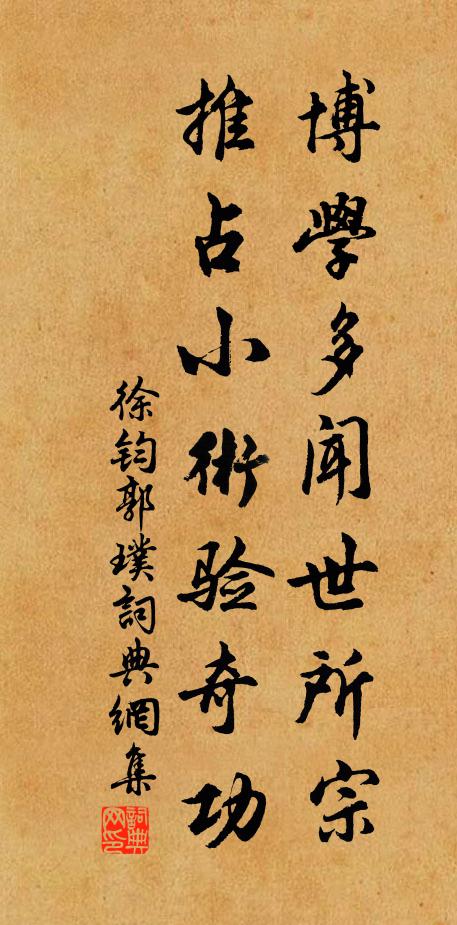 博學多闻世所宗
推占小術验奇功
徐钧郭璞詞典網集
詞典网印